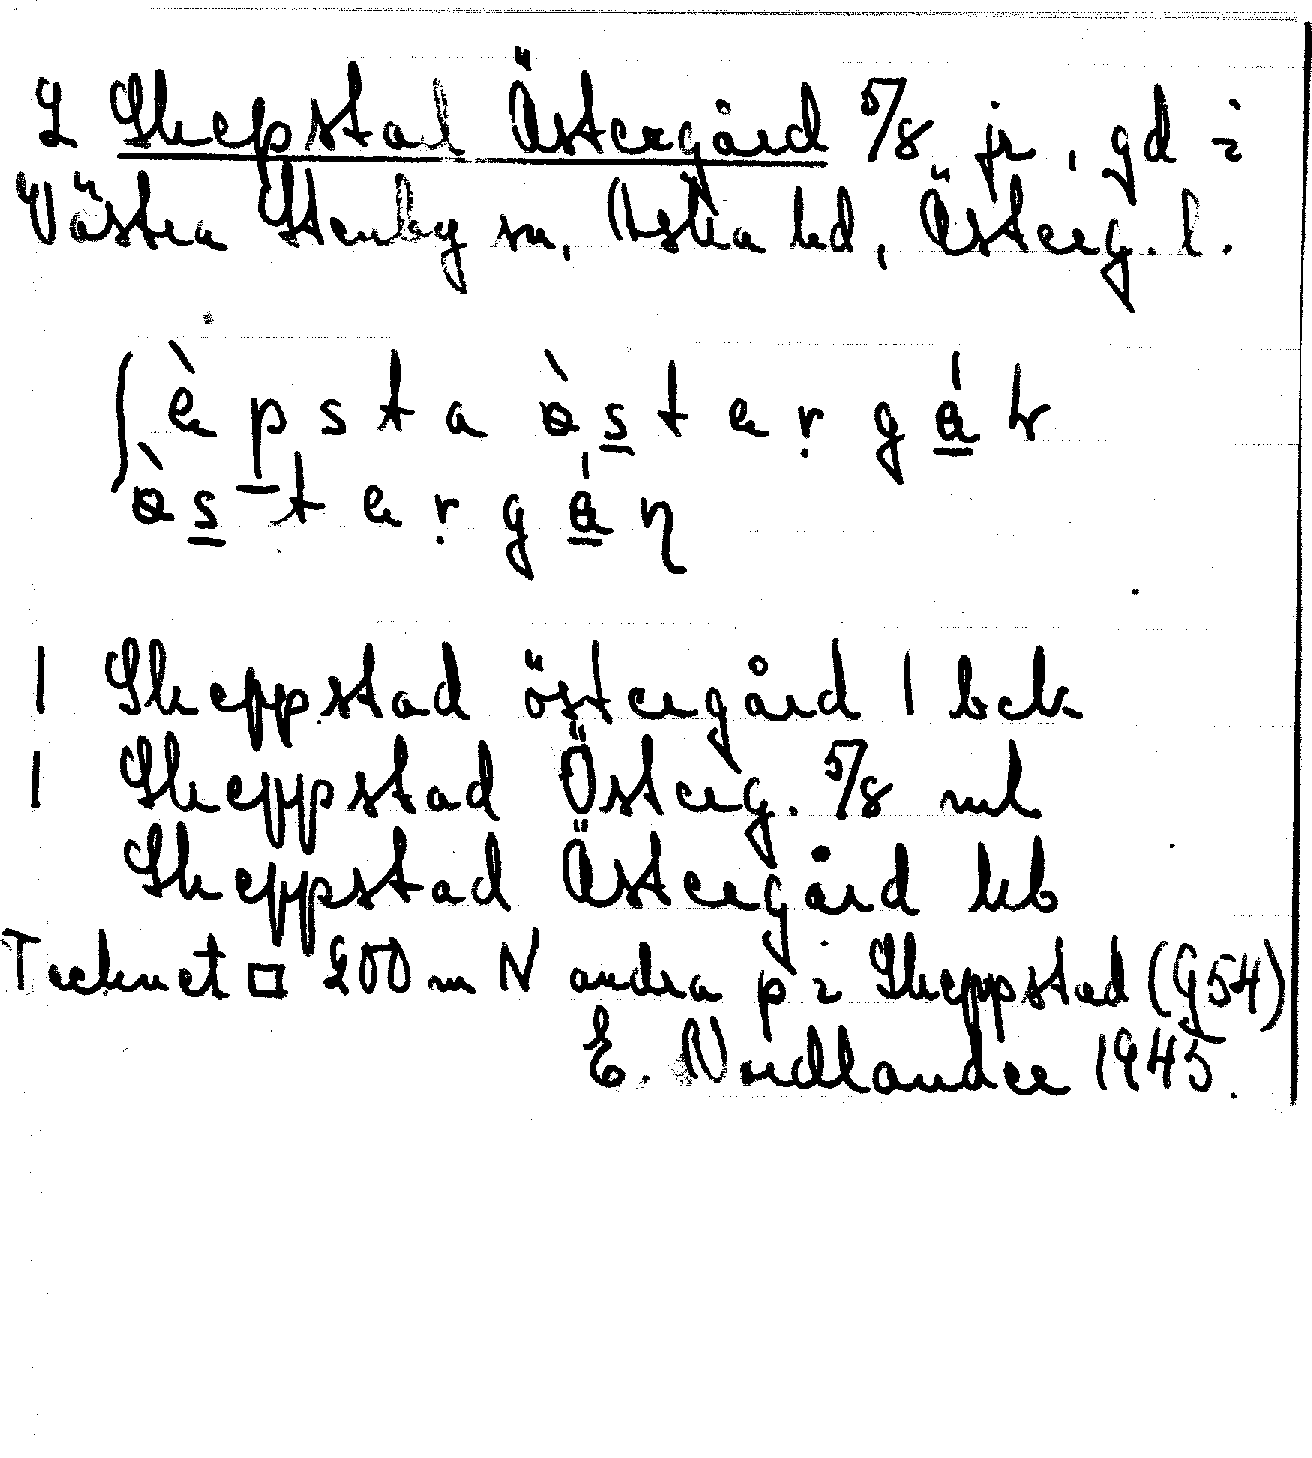 2 Skepstad Östergård 5/8 jr, gd i
Västra Stenby sn, Aska hd, Österg. l.
ʃèpsta ö̀sterg
ö̀sterg
1 Skeppstad östergård 1 bek
1 Skeppstad Österg. 5/8 ml
Skeppstad Östergård kb
Tecknet □ 200 m N andra p i Skeppstad (954)
E. Nordlander 1945.